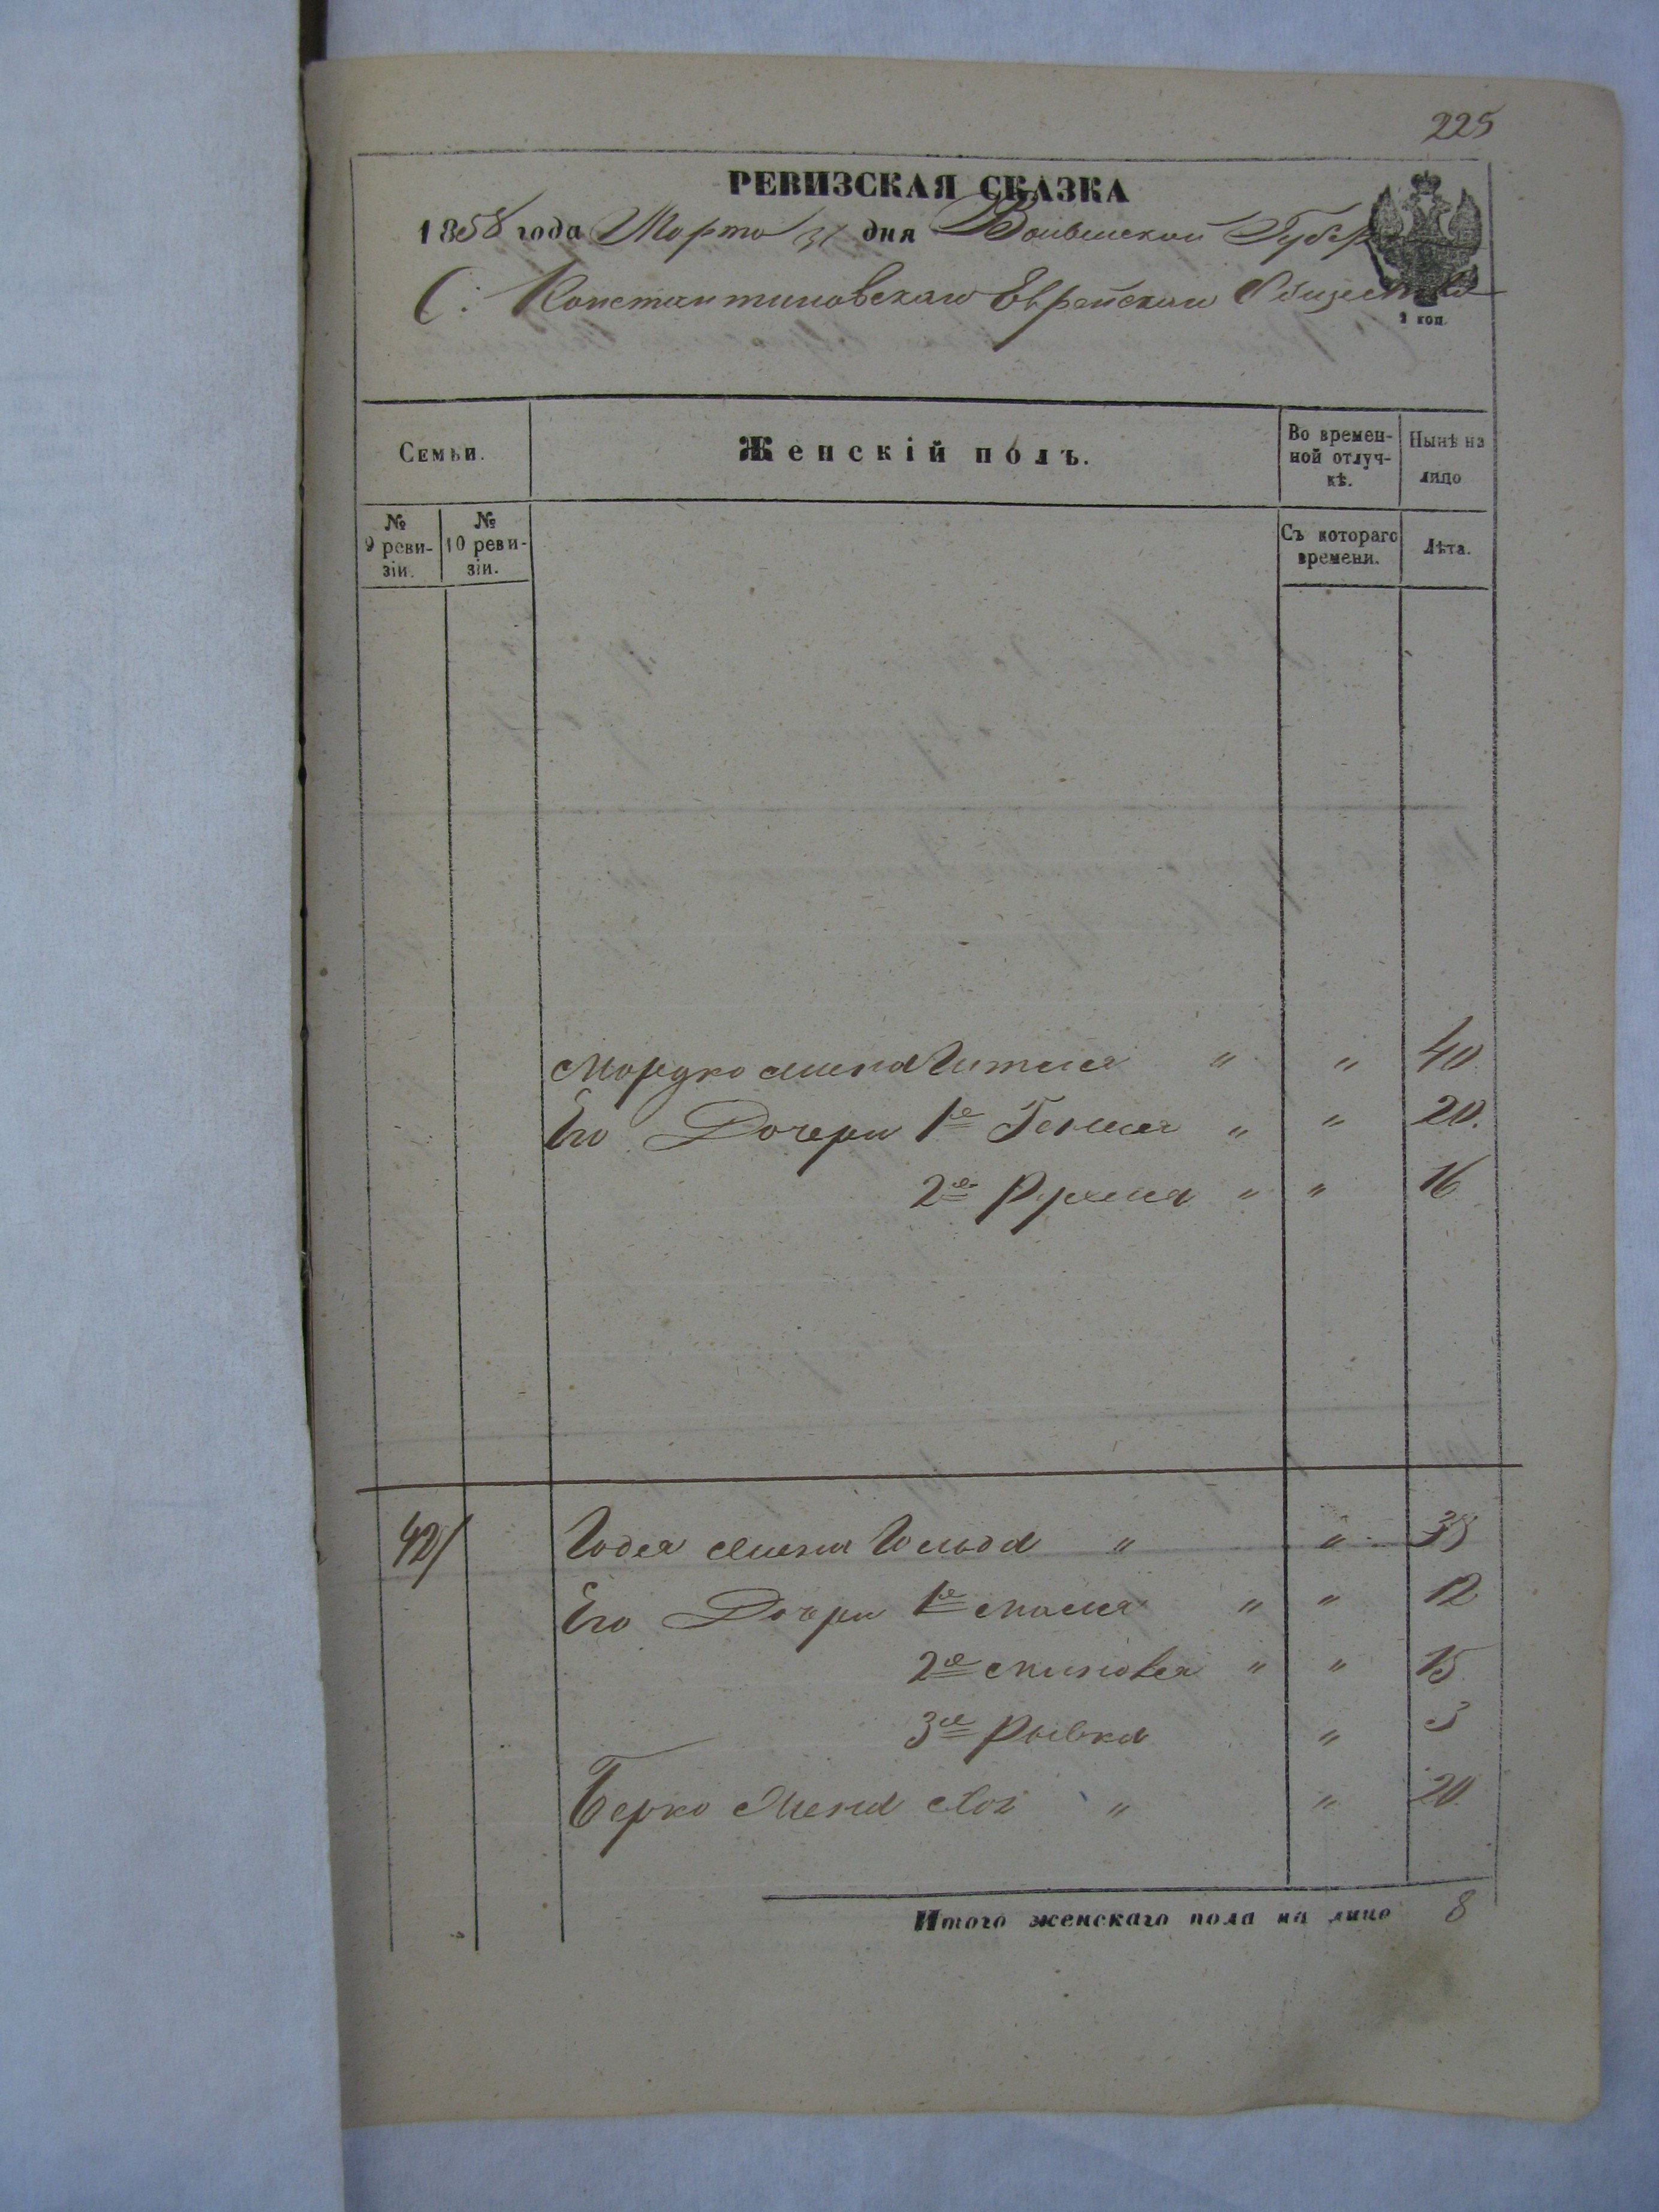 225
РЕВИЗСКАЯ СКАЗКА
1858 года Марта 31 дня Волынской Губер
С: Константиновскаго Еврейскаго Общества
2 коп.
Семьи.
Женскій полъ.
Во времен-
ной отлуч-
кѣ.
Нынѣ на
лицо
№
9 реви-
зіи.
№
10 реви-
зіи.
Съ котораго
времени.
Лѣта.
Мордко жена Гитля " " 40
Его Дочери 1я Генця " " 20.
2я Рухля " " 16
42/ Годел жена " "
Его Дочери 1я " " 12
2я " " 15
3я Рывка " 3
Берко жена " " 20
Итого женскаго пола на лицо 8